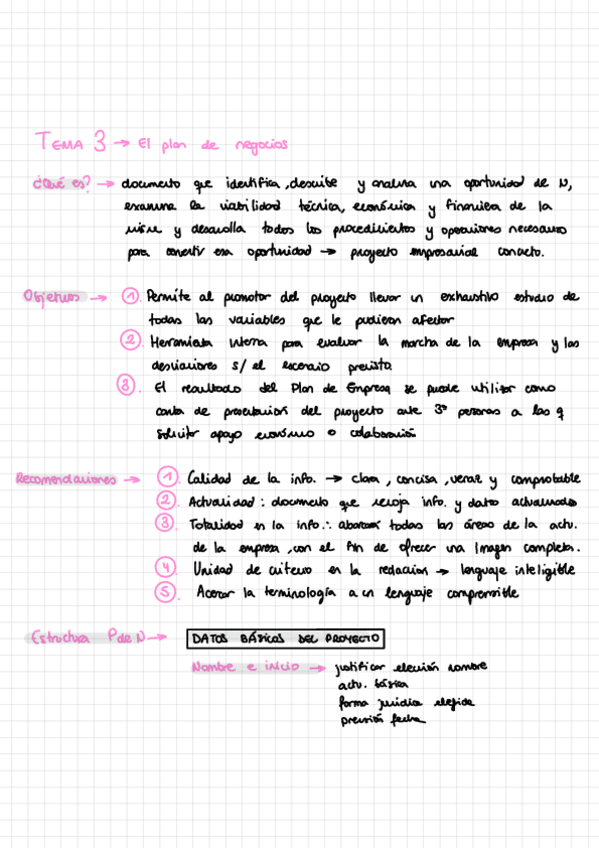 TEMA 3 → El plan de negocios
¿Qué es? → documento que identifica, describe y analiza una oportunidad de N,
examina la viabilidad técnica, económica y financiera de la
misma y desarrolla todos los procedimientos y operaciones necesarios
para convertir esa oportunidad → proyecto empresarial concreto.
Objetivos → 1. Permite al promotor del proyecto llevar un exhaustivo estudio de
todas las variables que le pudieran afectar
2. Herramienta interna para evaluar la marcha de la empresa y las
desviaciones s/ el escenario previsto.
3. El resultado del Plan de Empresa se puede utilizar como
carta de presentación del proyecto ante 3º personas a las q
solicitar apoyo económico o colaboración.
Recomendaciones → 1. Calidad de la info. → clara, concisa, veraz y comprobable
2. Actualidad: documento que recoja info. y datos actualizados
3. Totalidad en la info.: abarcar todas las áreas de la actv.
de la empresa, con el fin de ofrecer una imagen completa.
4. Unidad de criterio en la redacción → lenguaje inteligible
5. Acercar la terminología a un lenguaje comprensible
Estructura P de N → DATOS BÁSICOS DEL PROYECTO
Nombre e inicio → justificar elección nombre
actv. básica
forma jurídica elegida
previsión fecha